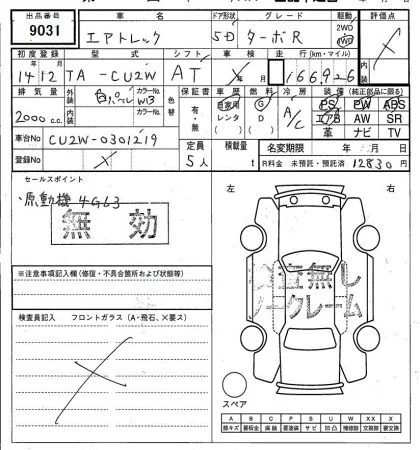 出品番号 車名 ドア形状 グレード 駆動 評価点
9031 エアトレック 5D ターボR 2WD 4WD
初度登録 型式 シフト 車検 走行(km・マイル)
14 12 TA-CU2W AT 年 月 166,926
排気量 外装 カラーNo. 色替 保証書 車歴 燃料 冷房 装備(純正部品に限る)
2000 c.c. 内装 カラーNo. 有・無 自家用 G A/C PS PW ABS
レンタ D エアB AW SR
車台No CU2W-0301219 革 ナビ TV
定員 積載量 名変期限 年 月 日
登録No 5人 t R料金 未預託・預託済 12830円
セールスポイント
原動機 4G63
無効
左 右
※注意事項記入欄(修復・不具合箇所および状態等)
検査員記入 フロントガラス(A・飛石、×要ス)
無し
ノークレーム
スペア
A B C P S U W X XX
線キズ 要板金 腐蝕 要塗装 サビ 凹凸 補修跡 交換跡 要交換